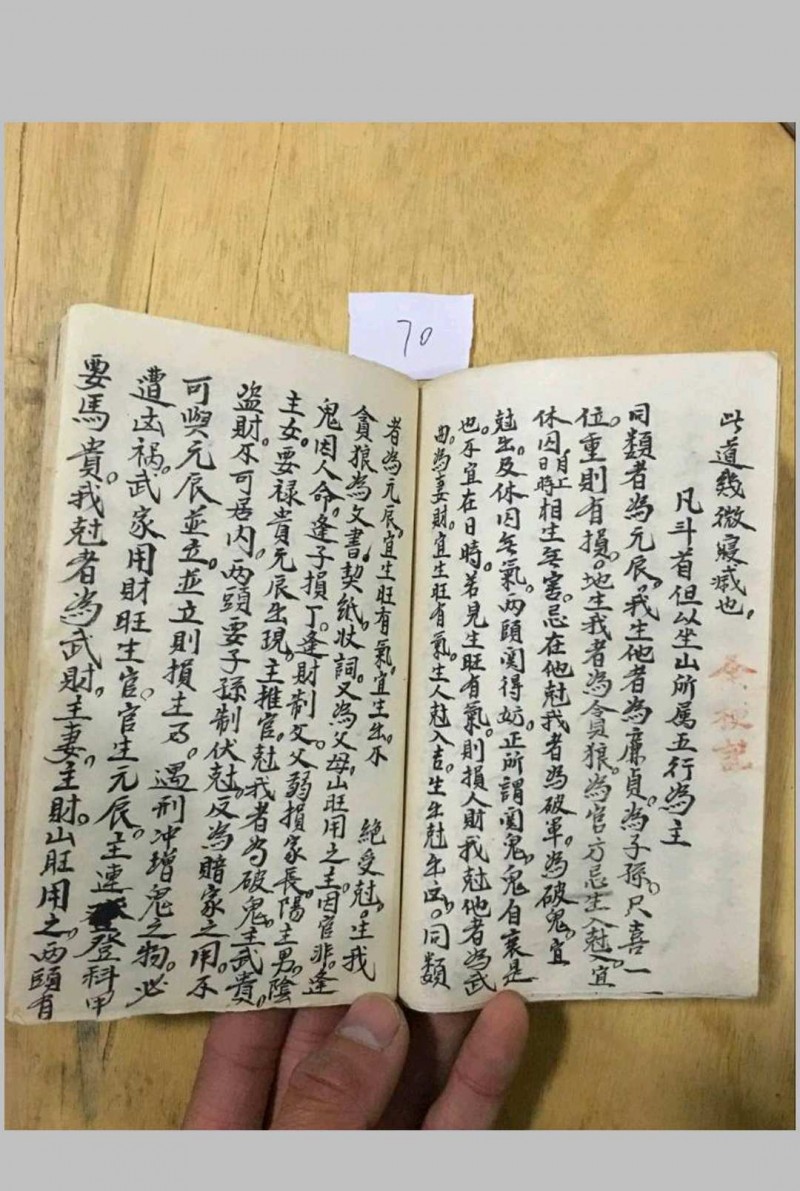 70
此道幾微寢滅也，
凡斗首但以坐山所属五行為主
同類者為元辰。我生他者為廉貞。為子孫。尺喜一
位。重則有損。地生我者為貪狼。為官方忌生入尅。宜
休囚日月上時相生無害。忌在他尅我者為破軍。為破鬼。宜
尅出。及休囚無氣。两頭関得妨。正所謂関鬼。鬼自衰是
也。不宜在日時。若見生旺有氣。則損人財我尅他者為武
曲。為妻財。宜生旺有氣。生人尅入吉。生出尅出凶。同類
者為元辰。宜生旺有氣，宜生出。不
絶受尅。生我
貪狼為文書。契紙。狀詞。又為父母。山旺用之。主因官非。逢
鬼因人命。逢子損丁。逢財制父。父弱損家長。陽主男。陰
主女。要禄貴元辰出現。主推官。尅我者為破鬼。主武貴。
盗財。不可居内。两頭要子孫制伏尅。反為暗家之用。不
可與元辰並立。並立則損主。遇刑冲增鬼之物。必
遭凶禍。武家用財旺生官。官生元辰。主連登科甲
要馬貴。我尅者為武財。主妻。主財。山旺用之。两頭有